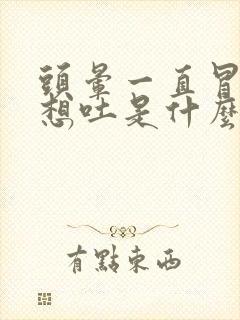 頭暈一直冒
想吐是什麼
有點東西